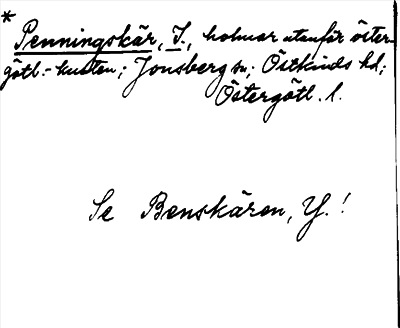 * Penningskär, I., holmar utanför öster-
götl.-kusten; Jonsberg sn; Östkinds hd;
Östergötl. l.
Se Benskären, Y.!